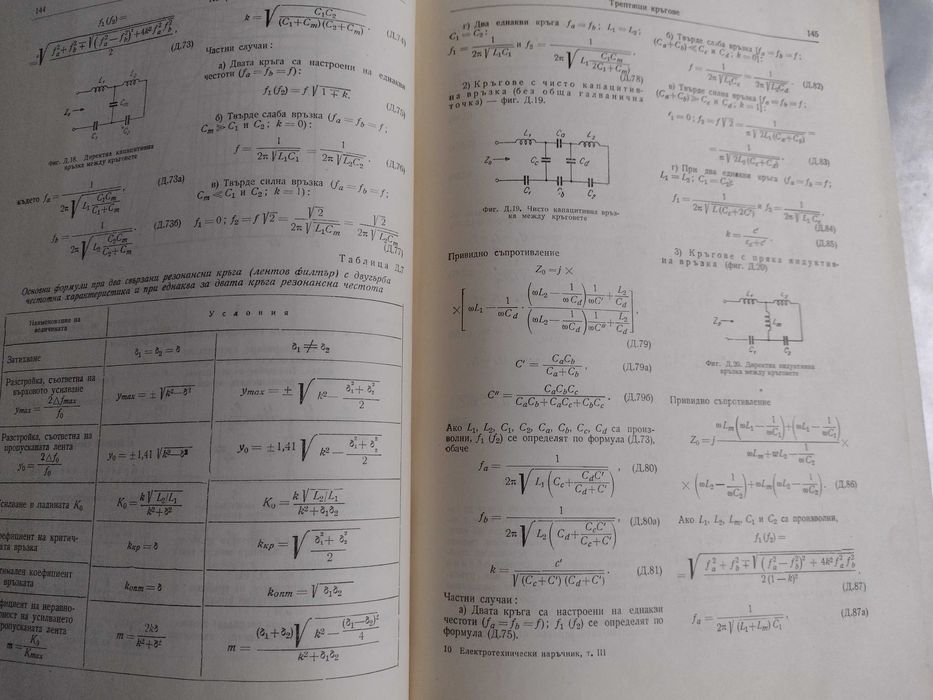 144
f₁(f₂) =
= √((f_a² + f_b² ∓ √((f_a² − f_b²)² + 4k² f_a² f_b²)) / 2) (Д.73)
L₁ L₂
Z₀ C_m
C₁ C₂
Фиг. Д.18. Директна капацитивна
връзка между кръговете
където f_a = 1 / (2π √(L₁ C₁C_m / (C₁+C_m))) , (Д.73а)
f_b = 1 / (2π √(L₂ C₂C_m / (C₂+C_m))) (Д.73б)
k = √(C₁C₂ / ((C₁+C_m)(C₂+C_m))) (Д.74)
Частни случаи :
а) Двата кръга са настроени на еднакви
честоти (f_a = f_b = f) :
f₁(f₂) = f √(1 ∓ k). (Д.75)
б) Твърде слаба връзка (f_a = f_b = f ;
C_m ≫ C₁ и C₂ ; k = 0) :
f = 1 / (2π √(L₁C₁)) = 1 / (2π √(L₂C₂)) . (Д.76)
в) Твърде силна връзка (f_a = f_b = f ;
C_m ≪ C₁ и C₂ ; k = 1) :
f₁ = 0 ; f₂ = f √2 = √2 / (2π √(L₁C_m)) = √2 / (2π √(L₂C_m)) (Д.77)
Таблица Д.7
Основни формули при два свързани резонансни кръга (лентов филтър) с двугърба
честотна характеристика и при еднаква за двата кръга резонансна честота
Наименование на
величината
Условия
Затихване
δ₁ = δ₂ = δ
δ₁ ≠ δ₂
Разстройка, съответна на
върховото усилване
y_max = 2Δf_max / f₀
y_max = ± √(k² − δ²)
y_max = ± √(k² − (δ₁² + δ₂²) / 2)
Разстройка, съответна на
пропусканата лента
y₀ = 2Δf₀ / f₀
y₀ = ±1,41 √(k² − δ²)
y₀ = ±1,41 √(k² − (δ₁² + δ₂²) / 2)
силване в падината K₀
K₀ = k √(L₂/L₁) / (k² + δ²)
K₀ = k √(L₂/L₁) / (k² + δ₁δ₂)
ефициент на критич-
ната връзка
k_кр = δ
k_кр = √((δ₁² + δ₂²) / 2)
тимален коефициент
връзката
k_опт = δ
k_опт = √(δ₁δ₂)
фициент на неравно-
рност на усилването
пропусканата лента
m = K₀ / K_max
m = 2kδ / (k² + δ²)
m = (δ₁+δ₂) √(k² − (δ₁−δ₂)² / 4) / (k² + δ₁δ₂)
Трептящи кръгове
145
г) Два еднакви кръга f_a = f_b ; L₁ = L₂ ;
C₁ = C₂ :
f₁ = 1 / (2π √(L₁C₁)) и f₂ = 1 / (2π √(L₁ C₁C_m / (2C₁+C_m))) (Д.78)
2) Кръгове с чисто капацитив-
на връзка (без обща галванична
точка) — фиг. Д.19.
L₁ C_a L₂
Z₀ C_c C_d
C₁ C_b C₂
Фиг. Д.19. Чисто капацитивна връз-
ка между кръговете
Привидно съпротивление
Z₀ = j ×
× [ωL₁ − 1/(ωC_d) · ((ωL₂ − 1/(ωC_d)) 1/(ωC′) + L₂/C_d) / ((ωL₂ − 1/(ωC_d)) 1/(ωC″) + L₂/C_d)] . (Д.79)
C′ = C_aC_b / (C_a + C_b) . (Д.79а)
C″ = C_aC_bC_c / (C_aC_b + C_aC_c + C_bC_c) . (Д.79б)
Ако L₁, L₂, C₁, C₂, C_a, C_b, C_c, C_d са произ-
волни, f₁ (f₂) се определят по формула (Д.73),
обаче
f_a = 1 / (2π √(L₁ (C_c + C_dC′ / (C_d + C′)))) , (Д.80)
f_b = 1 / (2π √(L₂ (C_d + C_cC′ / (C_c + C′)))) , (Д.80а)
k = c′ / √((C_c + C′) (C_d + C′)) . (Д.81)
Частни случаи :
а) Двата кръга са настроени на еднакви
честоти (f_a = f_b = f) ; f₁ (f₂) се определят по
формула (Д.75).
10 Електротехнически наръчник, т. III
б) Твърде слаба връзка (f_a = f_b = f ;
(C_a+C_b) ≪ C_c и C_d ; k = 0) :
f = 1 / (2π √(L₁C_c)) = 1 / (2π √(L₂C_d)) (Д.82)
в) Твърде силна връзка (f_a = f_b = f ;
(C_a+C_b) ≫ C_c и C_d ; k = 1) :
f₁ = 0 ; f₂ = f √2 = 1 / (π √(2L₁(C_a+C_b))) =
= 1 / (π √(2L₂(C_a+C_b))) . (Д.83)
г) При два еднакви кръга (f_a = f_b ;
L₁ = L₂ ; C₁ = C₂) :
f₁ = 1 / (2π √(L(C_c+2C′))) и f₂ = 1 / (2π √(L₁C_c)) (Д.84)
k = c′ / (c_c + c′) . (Д.85)
3) Кръгове с пряка индуктив-
на връзка (фиг. Д.20)
L₁ L₂
Z₀ L_m
C₁ C₂
Фиг. Д.20. Директна индуктивна
връзка между кръговете
Привидно съпротивление
Z₀ = j (ωL_m (ωL₁ − 1/(ωC₁)) + (ωL₂ − 1/(ωC₂))) / (ωL_m + ωL₂ − 1/(ωC₂)) ×
× (ωL₂ − 1/(ωC₂)) + ωL_m (ωL₂ − 1/(ωC₂)) . (Д.86)
Ако L₁, L₂, L_m, C₁ и C₂ са произволни,
f₁(f₂) =
= √((f_a² + f_b² ∓ √((f_a² − f_b²)² + 4k² f_a² f_b²)) / (2 (1 − k)²)) . (Д.87)
f_a = 1 / (2π √((L₁ + L_m) C₁)) (Д.87а)